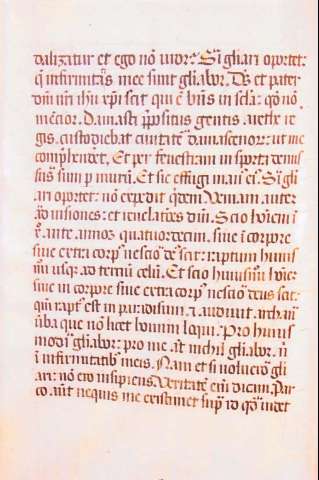 dalizatur et ego nō uror? Si gl̄iari oportet:
q̄ infirmitatis mee sunt gl̄iabor. Ds̄ et pater
dn̄i nr̄i ih̄u xp̄i scit qui ē bn̄s in scl̄a: qđ nō
mētior. Damasci p̄positus gentis arethe re
gis. custodiebat ciuitatē damascenoꝝ: ut me
comp̄henderet. Et per fenestram in sporta demis
sus sum p murū. Et sic effugi man9 ei9. Si gl̄i
ari oportet: nō expedit qđem. Veniam autem
ad uisiones: et reuelatiōes dn̄i. Scio hoīem ī
x̄. ante annos quatuordecim. siue ī corpore
siue extra corp9 nescio ds̄ scit: raptum huius
mōi usq; ad terciū celū. Et scio huiusmōi hoīem
siue in corpore siue extra corp9 nescio deus scit:
qm̄ rapt9 est in paradisum. ⁊ audiuit. archana
ūba que nō licet homini loqui. Pro huius
modi gl̄iabor: pro me āt nichil gl̄iabor. n̄
ī infirmitatib9 meis. Nam et si uoluero gl̄i
ari: nō ero insipiens. Veritatē enī dicam. Par
co. aūt nequis me existimet sup̄ id qđ uidet